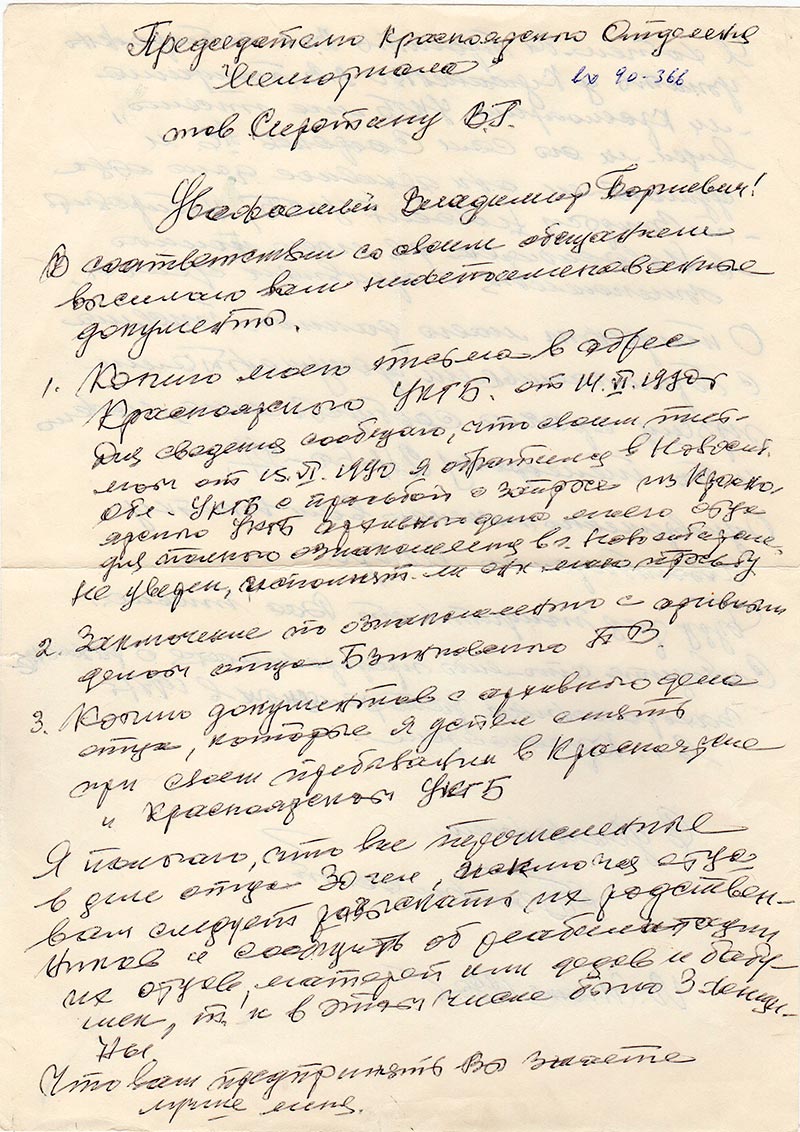 Председателю Красноярского Отделения
"Мемориала"
вх 90-366
тов Сиротину В.Г.
Уважаемый Владимир Георгиевич!
В соответствии со своим обещанием
высылаю вам нижепоименованные
документы.
1. Копию моего письма в адрес
Красноярского УКГБ. от 14.VI.1990г
Для сведения сообщаю, что своим пись-
мом от 15.VI.1990 я обратился в Новосиб.
обл. УКГБ с просьбой о запросе из Красно-
ярского УКГБ архивного дела моего отца
для полного ознакомления в г. Новосибирске.
Не уверен, исполнят ли они мою просьбу
2. Заключение по ознакомлению с архивным
делом отца П В.
3. Копию документов с архивного дела
отца, которые я успел снять
при своем пребывании в Красноярске
и Красноярском УКГБ
Я полагаю, что все перечисленные
в деле отца 30 чел, исключая отца
вам следует разыскать их родствен-
ников и сообщить об реабилитации
их отцов, матерей или дедов и бабу-
шек, т. к в этом числе было 3 женщи-
ны.
Что вам предпринять Вы знаете
лучше меня.